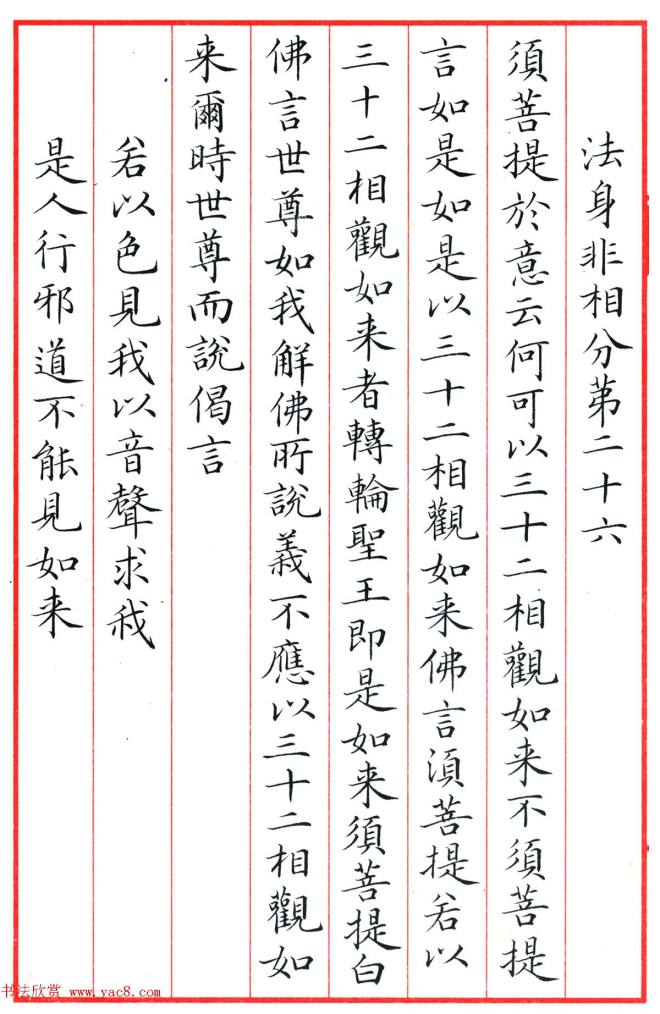 法身非相分第二十六
須菩提於意云何可以三十二相觀如来不須菩提
言如是如是以三十二相觀如来佛言須菩提若以
三十二相觀如来者轉輪聖王即是如来須菩提白
佛言世尊如我解佛所說義不應以三十二相觀如
来爾時世尊而說偈言
若以色見我以音聲求我
是人行邪道不能見如来
书法欣赏 www.yac8.com